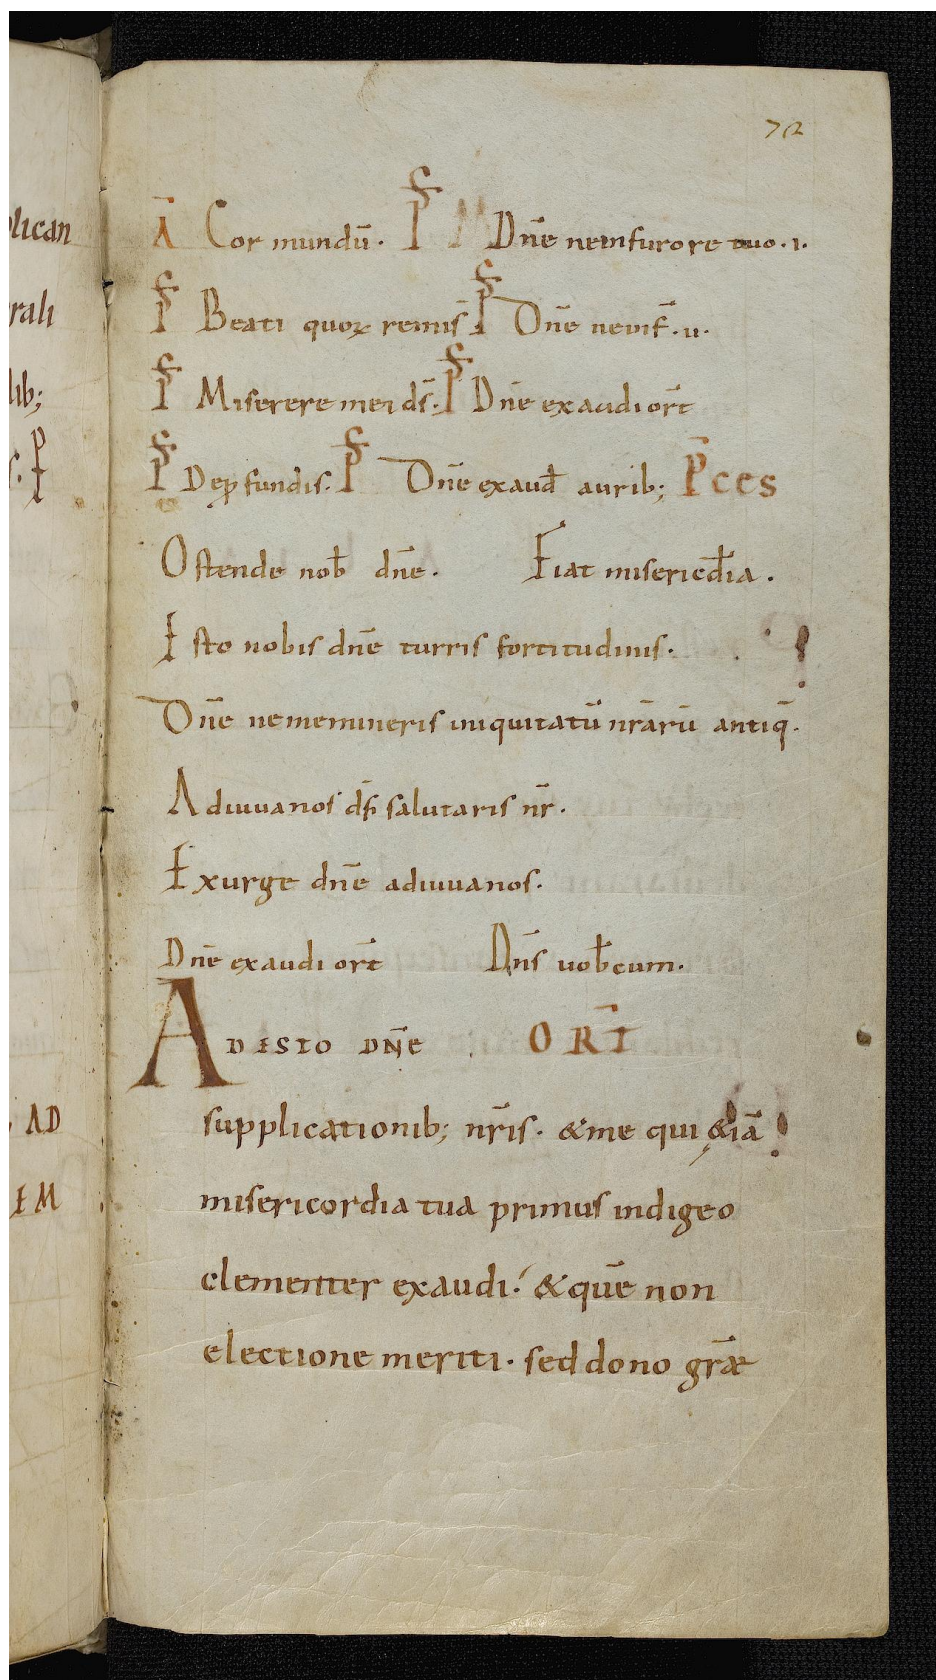 72
Ā Cor mundū. P̄S Dn̄e ne in furore tuo. i.
P̄S Beati quoꝝ remis̄ P̄S Dn̄e ne in f̄. ii.
P̄S Miserere mei ds̄. P̄S Dn̄e exaudi or̄t
P̄S De ꝓfundis. P̄S Dn̄e exaud̄ aurib; P̄ces
Ostende nob̄ dn̄e. Fiat misericd̄ia.
Esto nobis dn̄e turris fortitudinis.
Dn̄e ne memineris iniquitatū nr̄arū antiq̄.
Adiuua nos ds̄ salutaris nr̄.
Exurge dn̄e adiuua nos.
Dn̄e exaudi or̄t Dn̄s uob̄cum.
ADESTO DN̄E OR̄T
supplicationib; nr̄is. & me qui &iā
misericordia tua primus indigeo
clementer exaudi. & quē non
electione meriti. sed dono gr̄æ
plican
rali
lib;
AD
EM